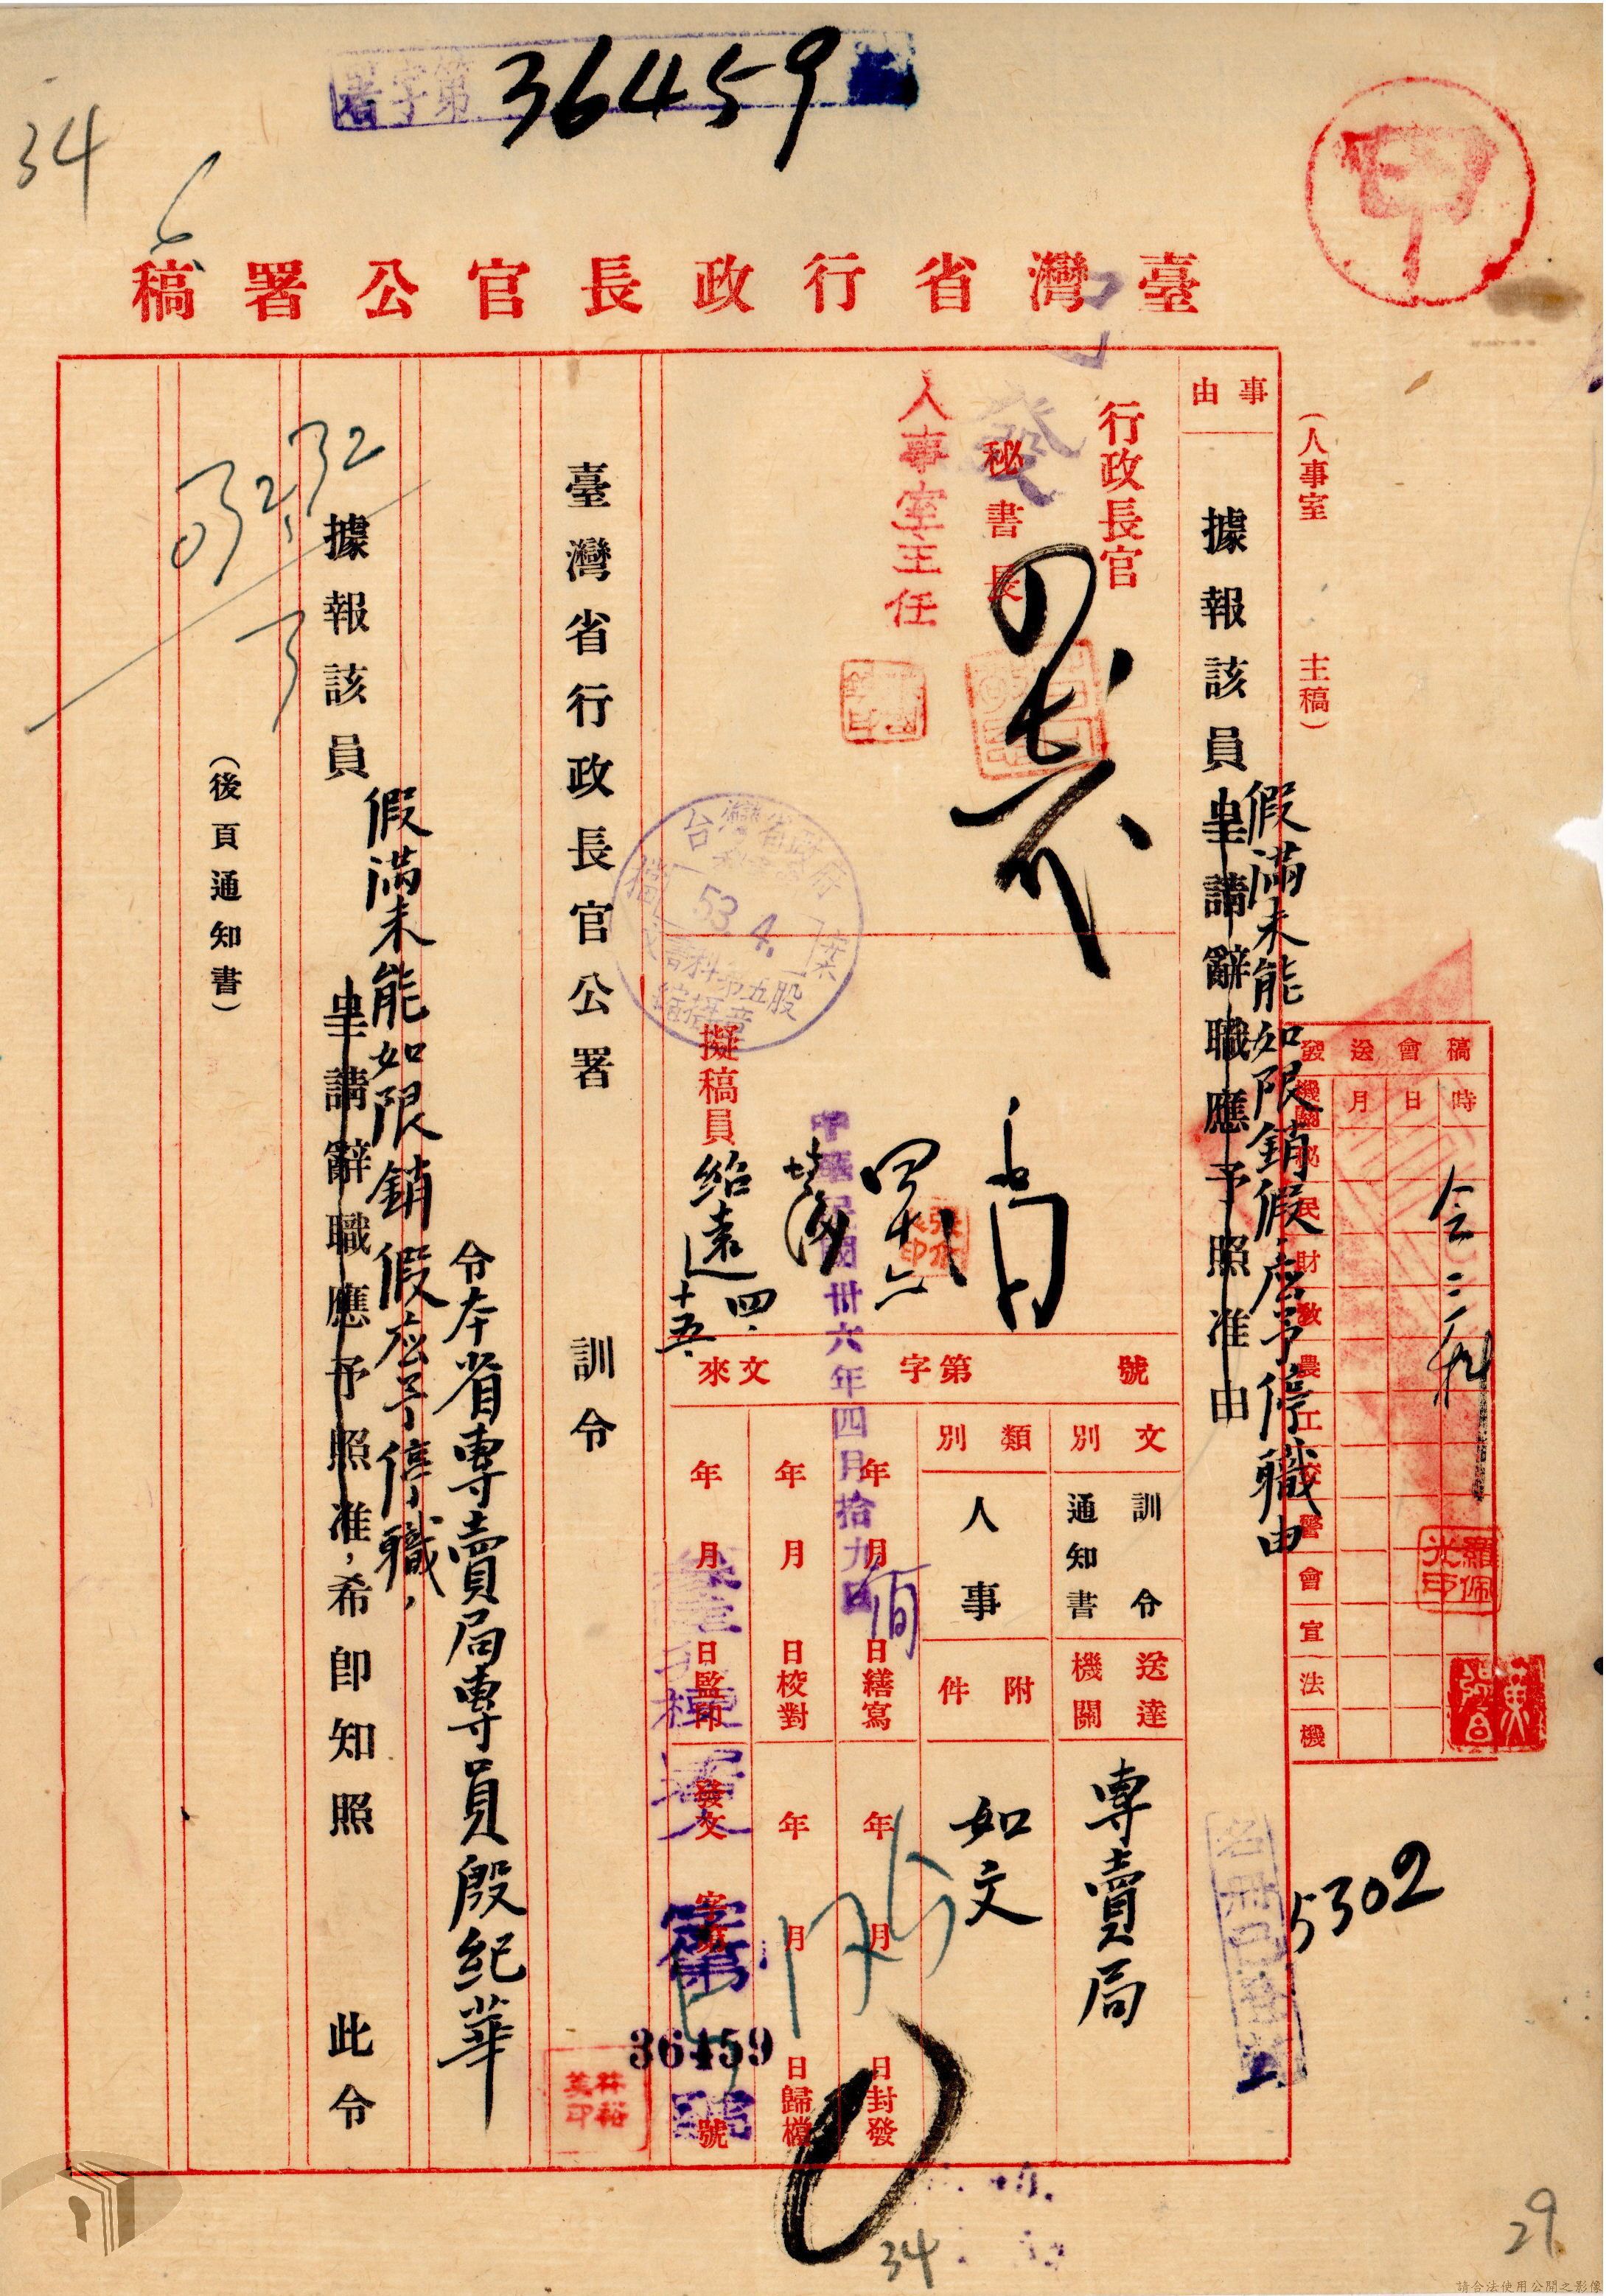 署字第 36459
34
甲
臺灣省行政長官公署稿
(人事室 主稿)
事由
據報該員呈請辭職應予照准由
假滿未能如限銷假應予停職由
行政長官
秘書長
人事室主任
擬稿員 紹遠 四.十五.
稿會送發
時日月機關
秘民財教農工交警會宣法機
羅佩光印
5302
來文 字第 號
文別 訓令 通知書
類別 人事
送達機關 專賣局
附件 如文
年月日繕寫
年月日校對
年月日監印
年月日封發
年月日歸檔
發文 字第 號
中華民國卅六年四月拾九日
36459
台灣省政府
53. 4.
檔案
文書科第五股
林裕美印
臺灣省行政長官公署 訓令
令本省專賣局專員殷紀華
假滿未能如限銷假應予停職,
據報該員呈請辭職應予照准,希即知照 此令
(後頁通知書)
3232
34
29
請合法使用公開之影像